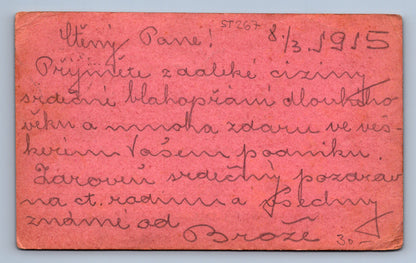 ST267
Ctěný Pane! 8./3. 1915
Přijměte z daleké ciziny
srdečné blahopřání dlouhého
věku a mnoha zdaru ve veš-
kerém Vašem podniku.
Zároveň srdečný pozdrav
na ct. rodinu a všechny
známé od
Brožé 30.-